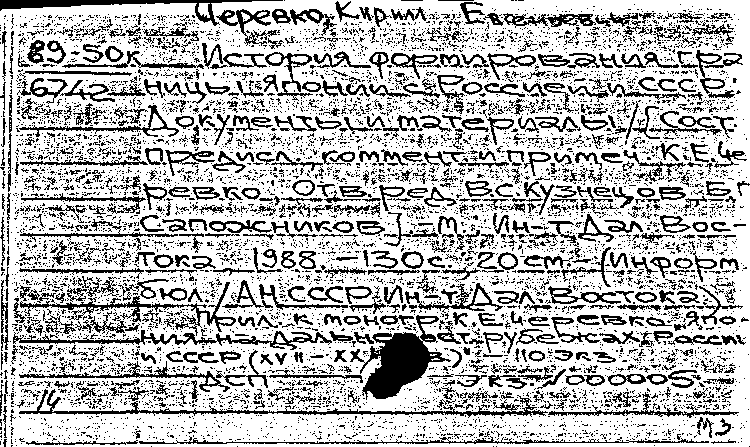 Черевко, Кирилл Евгеньевич
89-50к История формирования гра
6742 ницы Японии с Россией и СССР:
Документы и материалы / [Сост.
предисл., коммент. и примеч. К.Е.Че
ревко; Отв. ред. В.С.Кузнецов, Б.Г.
Сапожников]. - М.: Ин-т Дал. Вос-
тока, 1988. - 130 с.; 20 cm - (Информ.
бюл. / АН СССР, Ин-т Дал. Востока.)
Прил. к моногр. К.Е.Черевко „Япо-
ния на рубежах России
и СССР (XVII - XX вв.)" - 110 экз.
ДСП экз. №000005.
14
МЗ